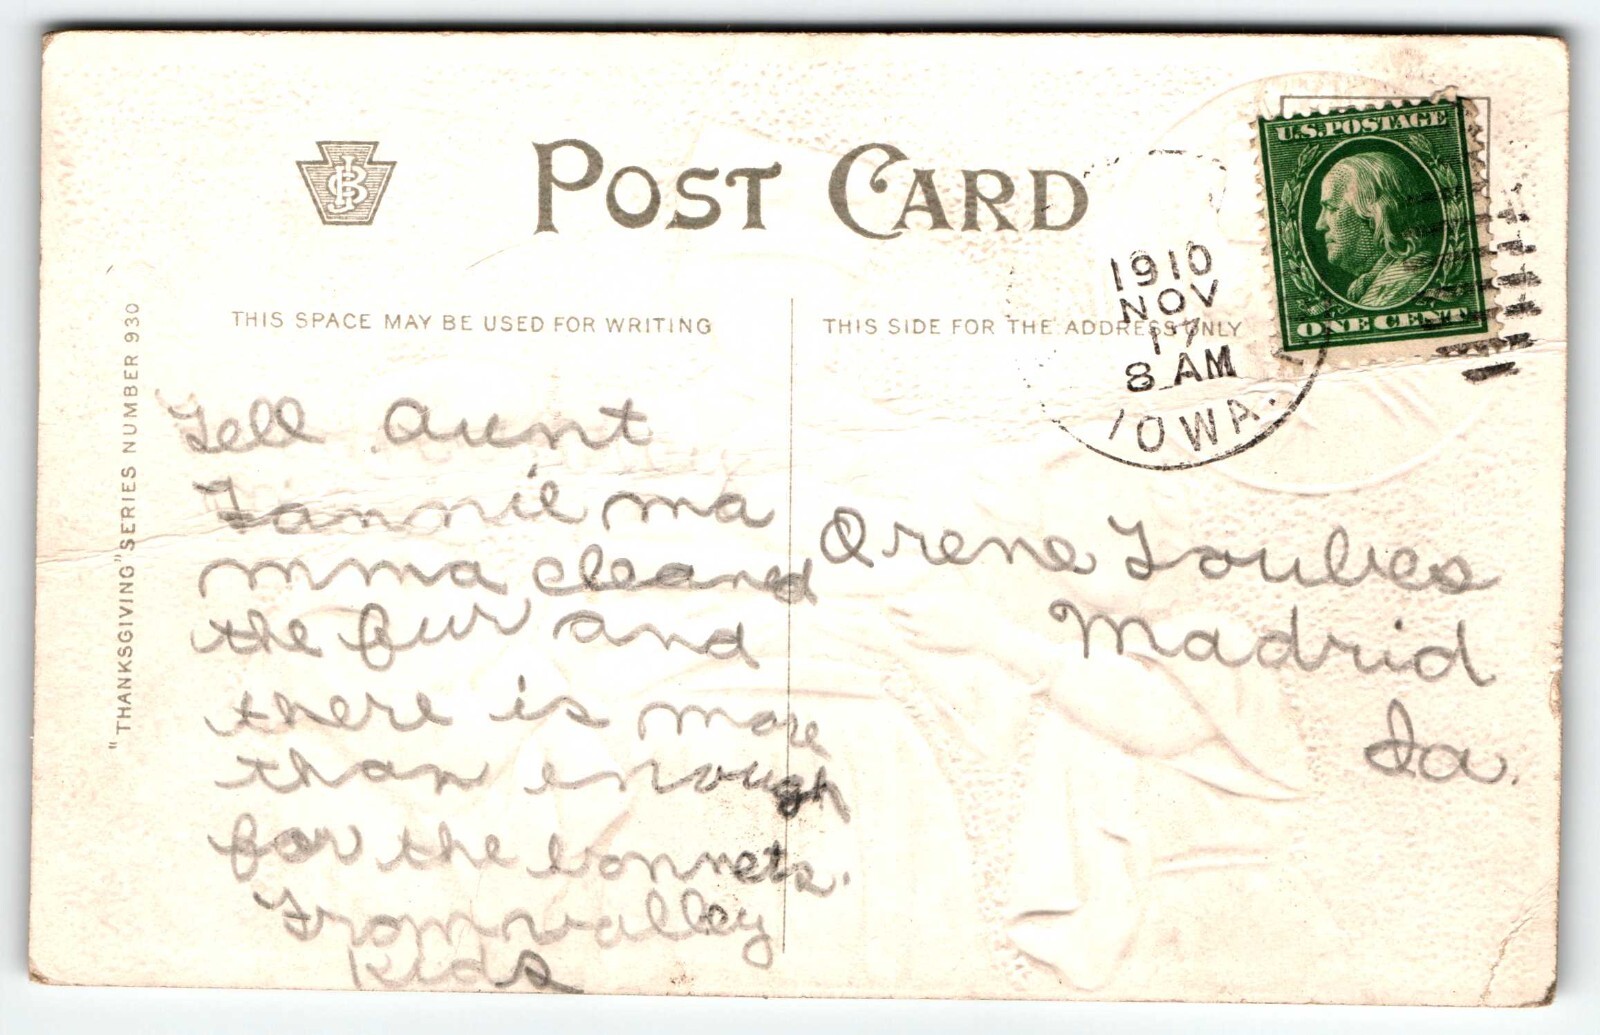 POST CARD
JSB
U.S. POSTAGE
ONE CENT
1910
NOV
17
8 AM
IOWA.
"THANKSGIVING" SERIES NUMBER 930
THIS SPACE MAY BE USED FOR WRITING
THIS SIDE FOR THE ADDRESS ONLY
Tell Aunt
Fannie ma
mma cleaned
the fur and
there is more
than enough
for the bonnets.
From valley
kids
Orene Loubes
Madrid
Ia.